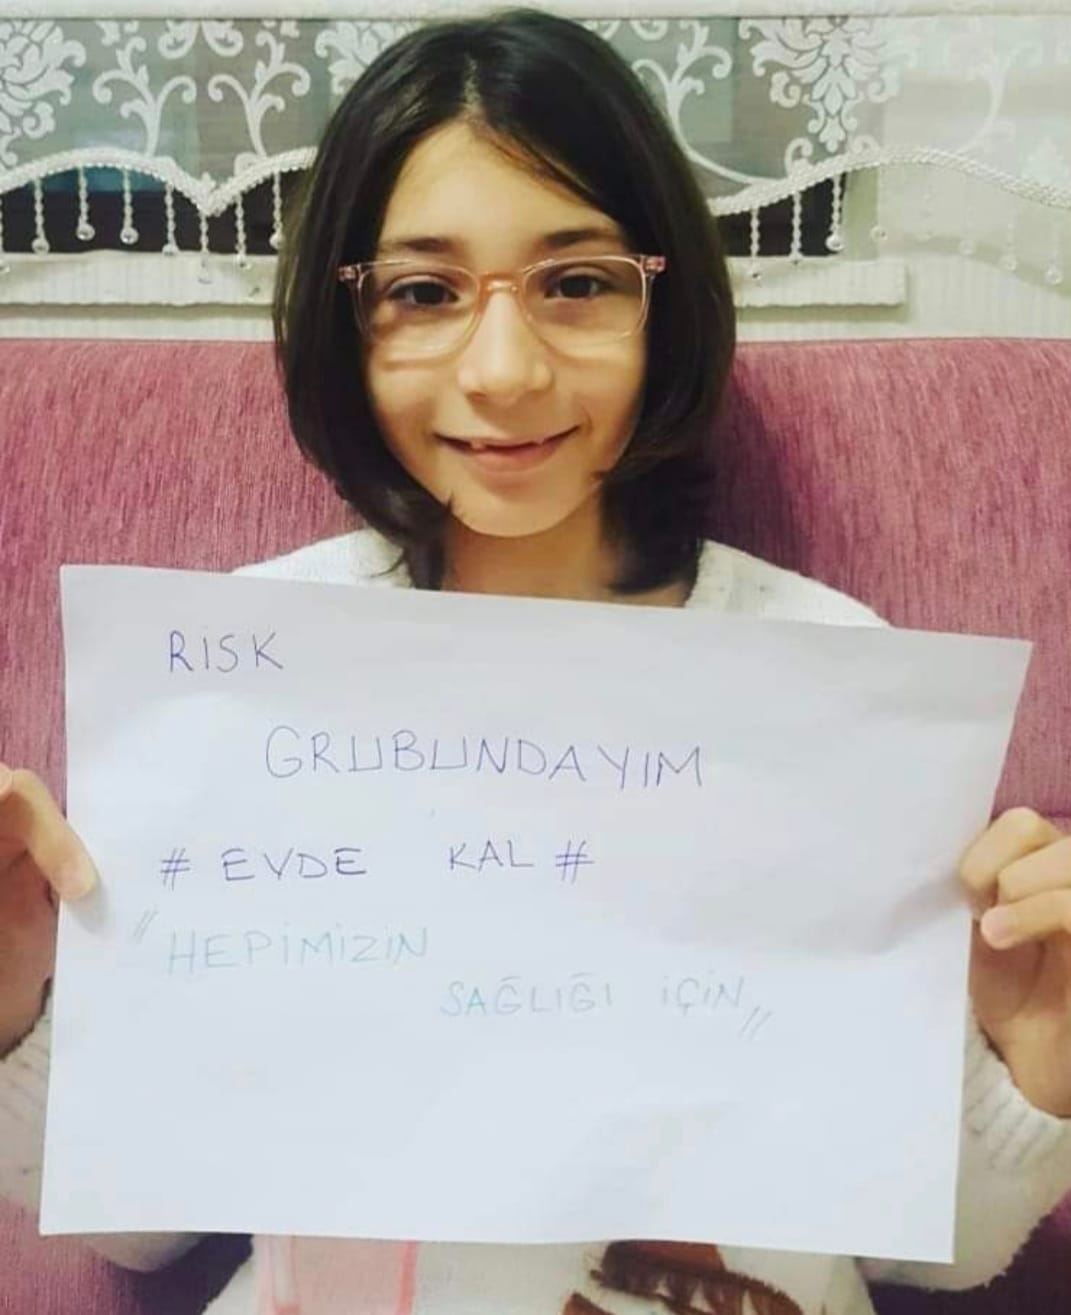 RİSK
GRUBUNDAYIM
# EVDE KAL #
"HEPİMİZİN
SAĞLIĞI İÇİN"